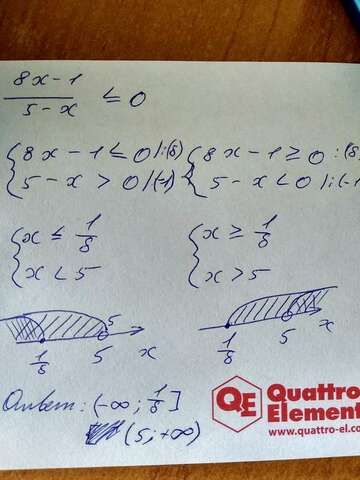 8x-1
5-x
≤ 0
{ 8x-1≤0 |:(8)
5-x>0 |(-1)
{ 8x-1≥0 :(8
5-x<0 |:(-1
{ x ≤ 1/8
x < 5
{ x ≥ 1/8
x > 5
1/8 5 5 x
1/8 5 x
Ответ: (-∞; 1/8]
(5; +∞)
QE Quattro
Element
www.quattro-el.co